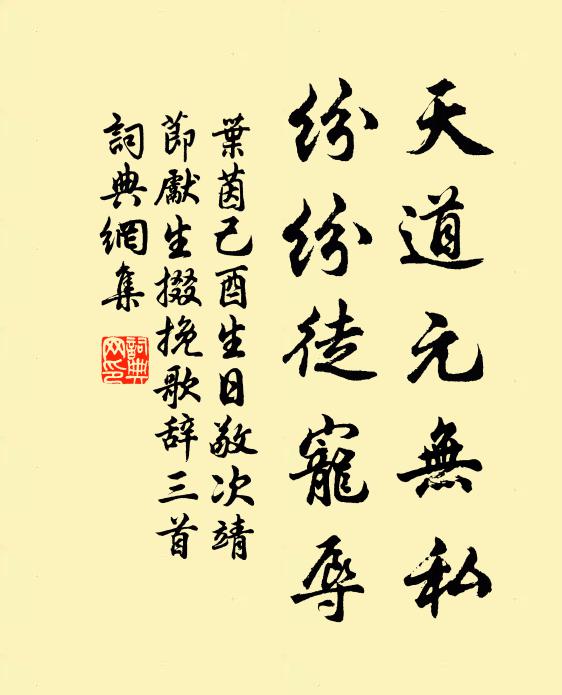 天道元無私
紛紛徒寵辱
葉茵己酉生日敬次靖
節獻生掇挽歌辞三首
詞典網集
詞典
网印